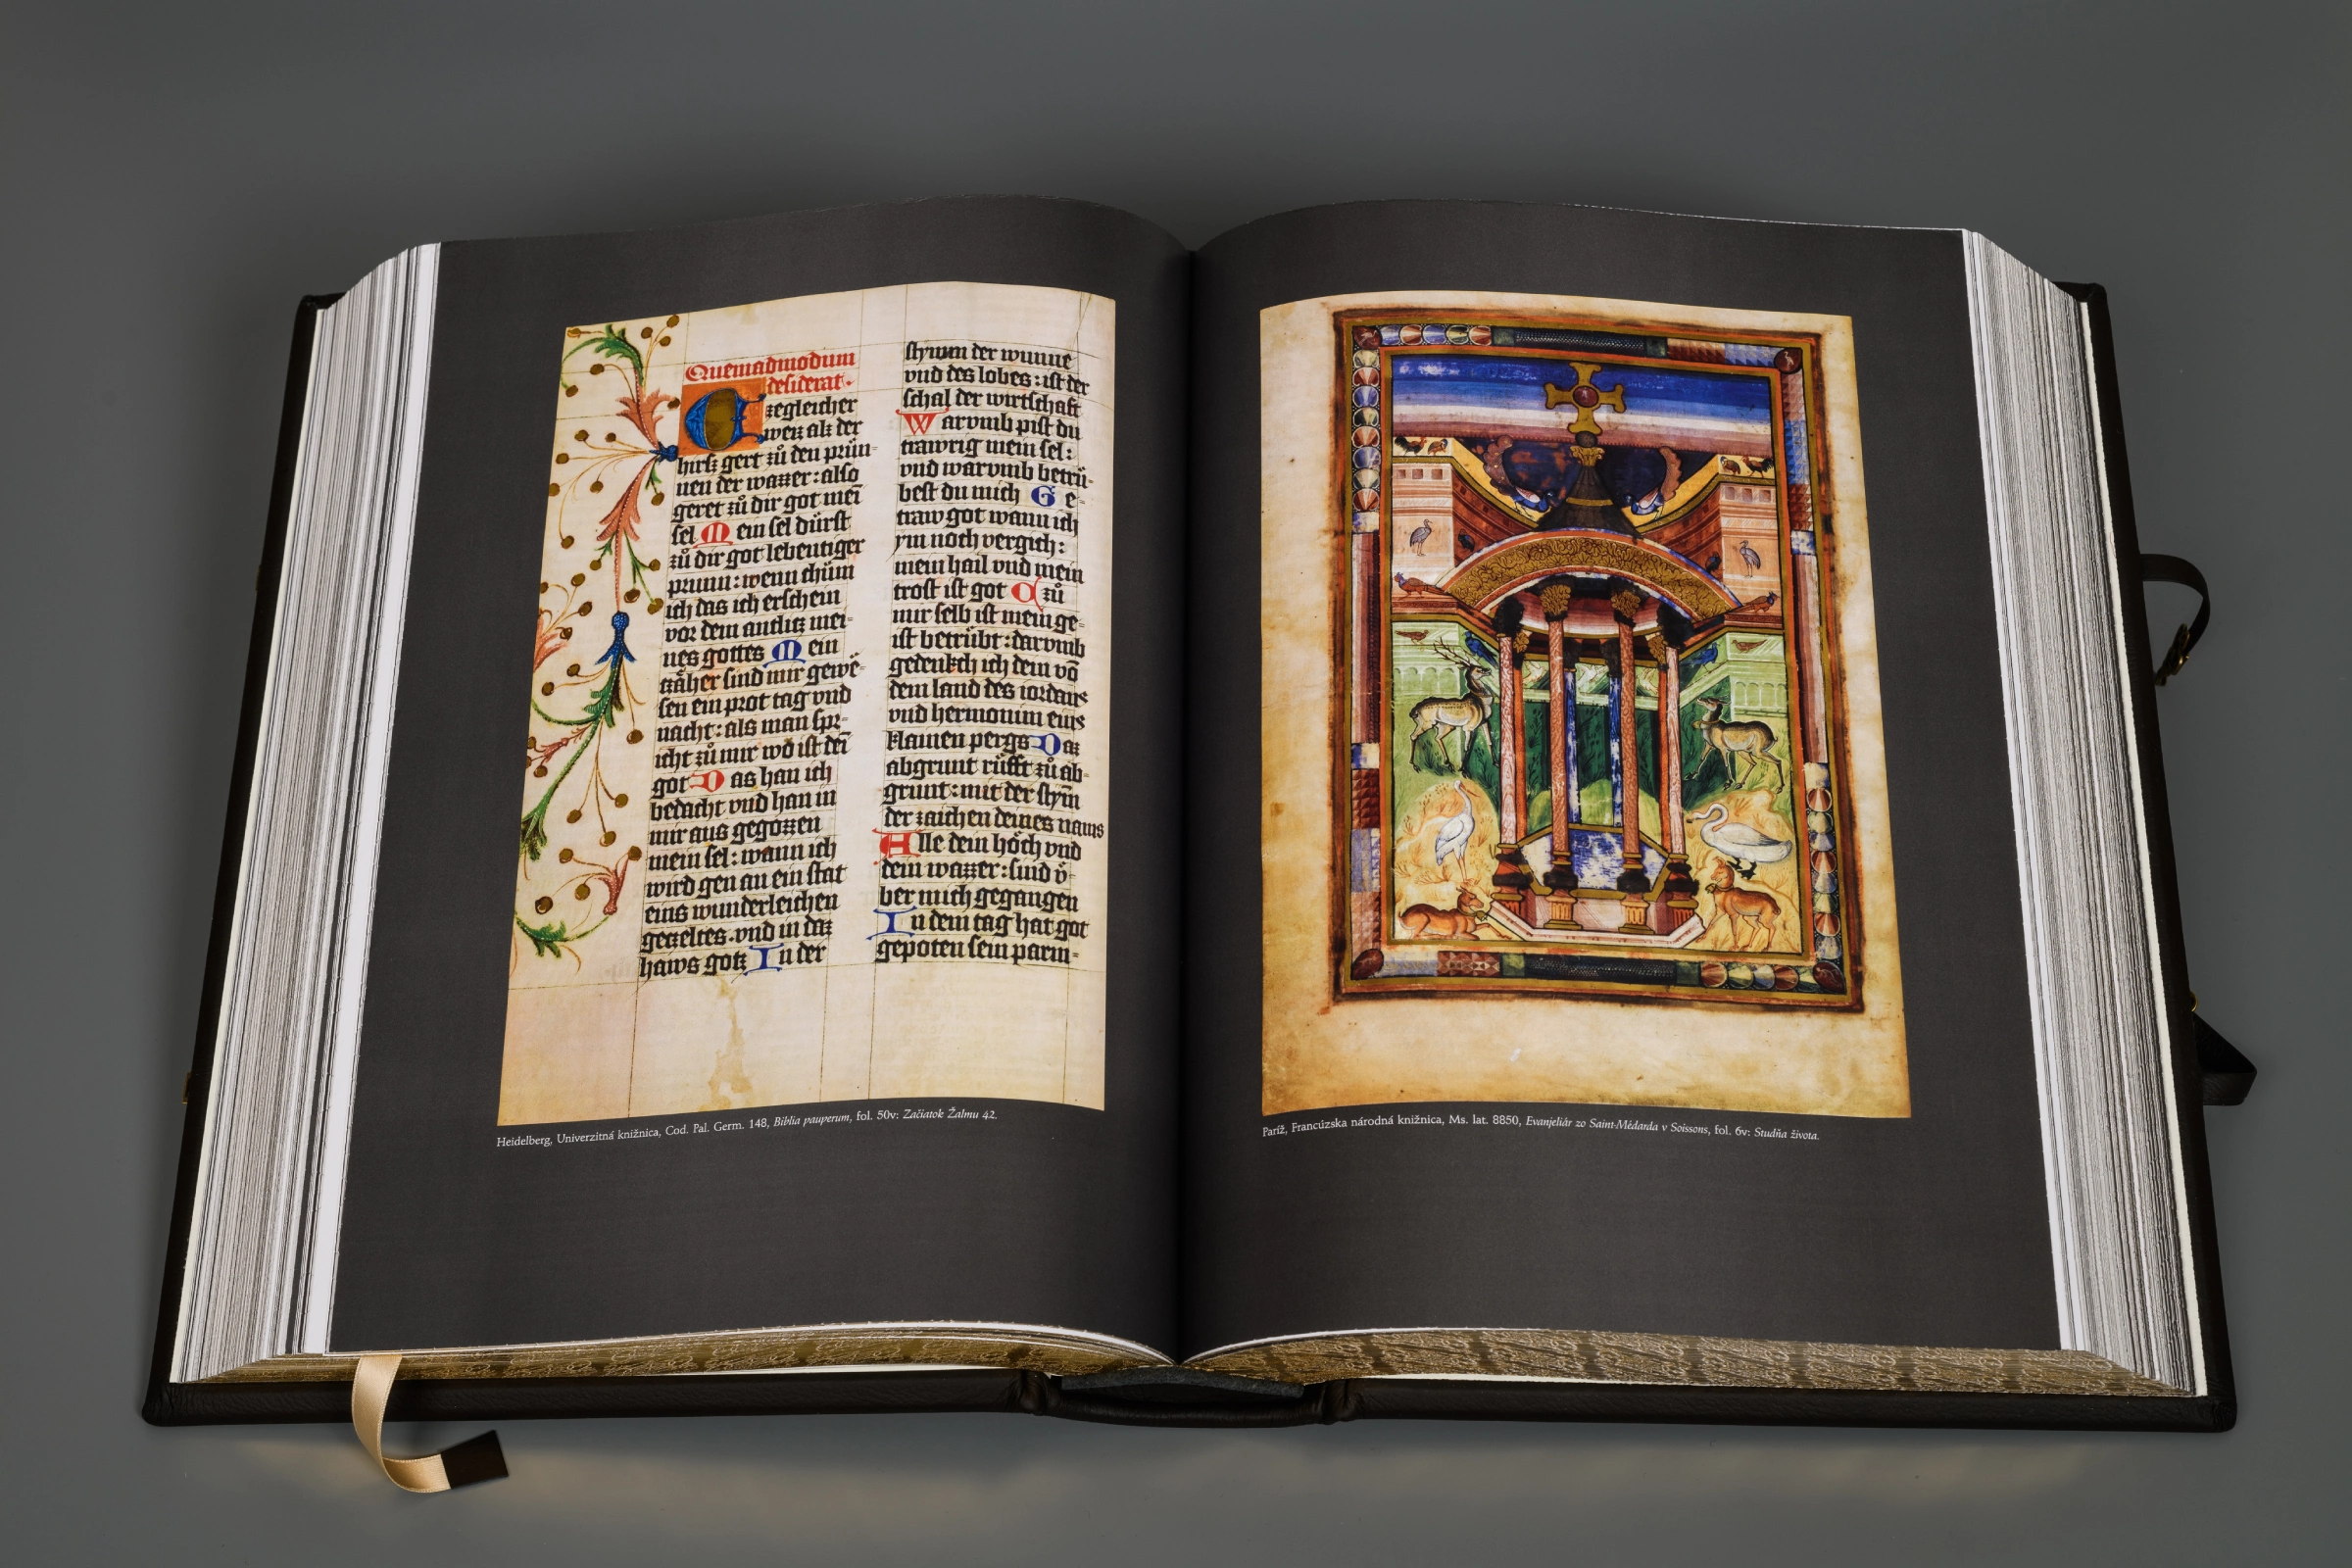 Quemadmodum
desiderat.
zegleicher
weiz alz der
hirsz gert zů den prün-
nen der wazzer: also
geret zů dir got mei
sel Mein sel dürst
zů dir got lebentiger
prunn: wenn chüm
ich das ich erschein
vor dem antlitz mei-
nes gottes Mein
zäher sind mir gewe-
sen ein prot tag vnd
nacht: als man spr-
icht zů mir wo ist dei
got Das han ich
bedacht vnd han in
mir aus gegozzen
mein sel: wann ich
wird gen an ein stat
eins wunderleichen
gezeltes. vnd in daz
haws gotz In der
stymm der wunne
vnd des lobes: ist der
schal der wirtschaft
Warvmb pist du
trawrig mein sel:
vnd warvmb betrü-
best du mich Ge-
traw got wann ich
ym noch vergich:
mein hail vnd mein
trost ist got zů
mir selb ist mein ge-
ist betrübt: darvmb
gedenkch ich dein vō
dem land des iordans
vnd hermonim eins
klainen pergs Daz
abgrunt rüfft zů ab-
grunt: mit der stym
der zaichen deines
Alle dein höch vnd
dein wazzer: sind ü-
ber mich gegangen
In dem tag hat got
gepoten sein parm-
Heidelberg, Univerzitná knižnica, Cod. Pal. Germ. 148, Biblia pauperum, fol. 50v: Začiatok Žalmu 42.
Paríž, Francúzska národná knižnica, Ms. lat. 8850, Evanjeliár zo Saint-Médarda v Soissons, fol. 6v: Studňa života.